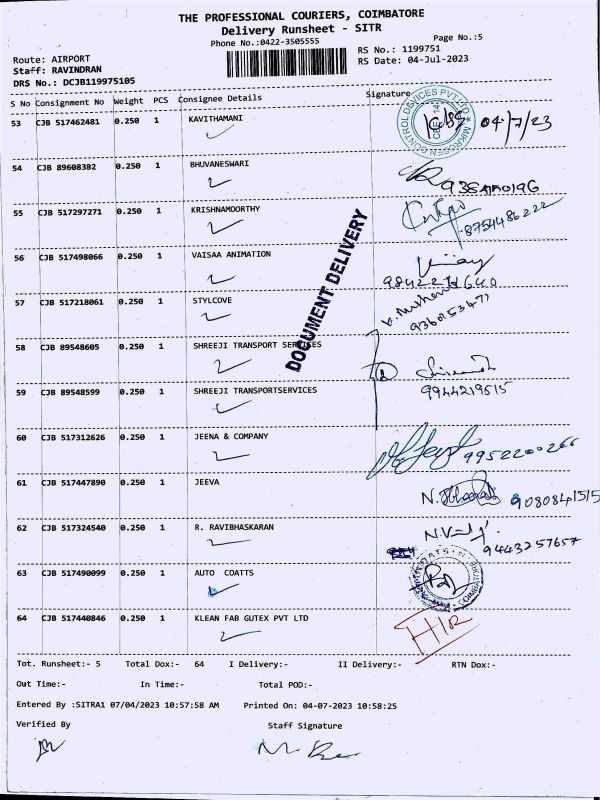 THE PROFESSIONAL COURIERS, COIMBATORE
Delivery Runsheet - SITR
Phone No.:0422-3505555
Page No.:5
Route: AIRPORT
RS No.: 1199751
Staff: RAVINDRAN
RS Date: 04-Jul-2023
DRS No.: DCJB119975105
S No Consignment No Weight PCS Consignee Details Signature
53 CJB 517462481 0.250 1 KAVITHAMANI 04/7/23
54 CJB 89608382 0.250 1 BHUVANESWARI
55 CJB 517297271 0.250 1 KRISHNAMOORTHY 8754486222
56 CJB 517498066 0.250 1 VAISAA ANIMATION
57 CJB 517218061 0.250 1 STYLCOVE 9360153477
DOCUMENT DELIVERY
58 CJB 89548605 0.250 1 SHREEJI TRANSPORT SERVICES
59 CJB 89548599 0.250 1 SHREEJI TRANSPORTSERVICES 9944219515
60 CJB 517312626 0.250 1 JEENA & COMPANY 9952200266
61 CJB 517447890 0.250 1 JEEVA 9080841515
62 CJB 517324540 0.250 1 R. RAVIBHASKARAN 9443257657
63 CJB 517490099 0.250 1 AUTO COATTS
64 CJB 517440846 0.250 1 KLEAN FAB GUTEX PVT LTD
Tot. Runsheet:- 5 Total Dox:- 64 I Delivery:- II Delivery:- RTN Dox:-
Out Time:- In Time:- Total POD:-
Entered By :SITRA1 07/04/2023 10:57:58 AM Printed On: 04-07-2023 10:58:25
Verified By Staff Signature